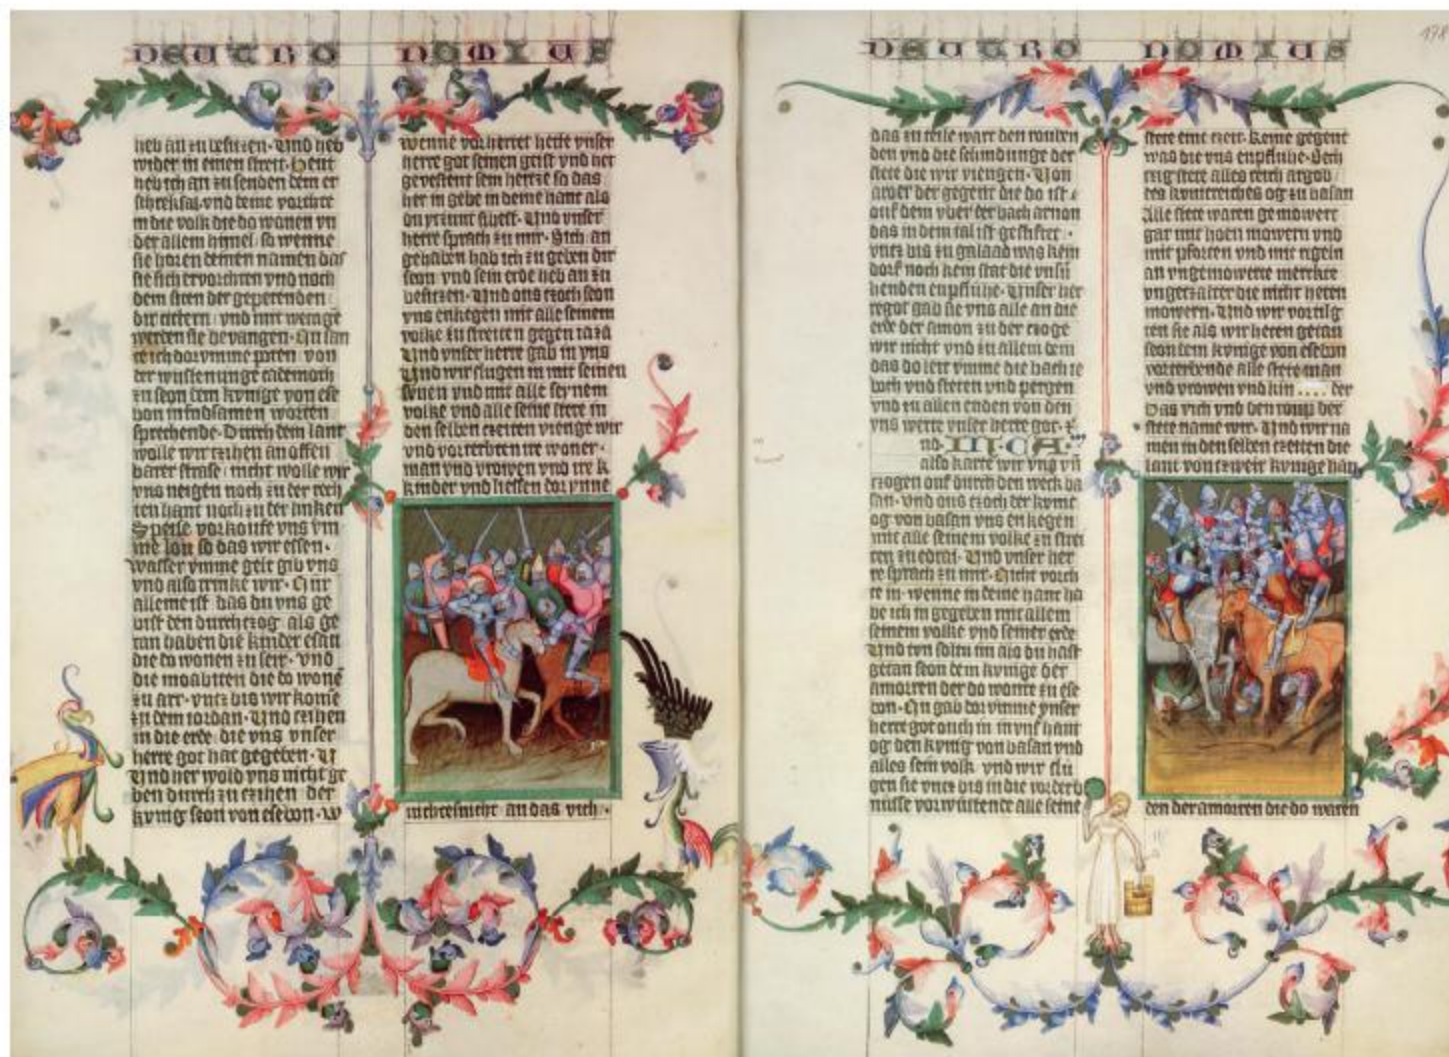 DEUTRO NOMIUS
heb an zu besitzen. Vnd heb
wider in einen streit. Heut
heb ich an zu senden dein er
schreksal vnd deine vorchte
in die volk die do wonen vn
der allem himel so wenne
sie horen deinen namen das
sie sich ervorchten vnd noch
dem siten der geperenden
dir czitern vnd mit
werden sie bevangen.
ich dorvmme poten von
der wustenunge cademoth
zu seon dem kvnige von ese
bon mit worten
sprechende. Durch dein lant
wolle wir czihen an offen
barer strase nicht wolle wir
vns neigen noch zu der rech
ten hant noch zu der linken
Speise vorkoufe vns vm
me lon so das wir essen.
wasser vmme gelt gib vns
vnd also trinke wir. Nur
alleine ist das du vns ge
bist den durchczog als ge
tan haben die kinder esau
die do wonen zu seir. vnd
die moabiten die do wonē
zu arr. vncz bis wir komē
zu dem iordan. Vnd czihen
in die erde die vns vnser
herre got hat gegeben. V
Vnd her wold vns nicht ge
ben durch zu czihen der
kvnig seon von esebon. W
wenne vorhertet hette vnser
herre got seinen geist vnd het
gevestent sein hertze so das
her in gebe in deine hant als
du yczunt sihest. Vnd vnser
herre sprach zu mir. Sich an
gehaben hab ich zu geben dir
seon vnd sein erde heb an zu
besitzen. Vnd ous czoch seon
vns enkegen mit alle seinem
volke zu streiten gegen iaza
Vnd vnser herre gab in vns
Vnd wir slugen in mit seinen
sŏnen vnd mit alle seynem
volke vnd alle seine stete in
den selben czeiten vienge wir
vnd vorterbten ire woner.
man vnd vrowen vnd ire k
kinder vnd liessen dor ynne
nichtesnicht an das vich.
DEUTRO NOMIUS
das zu teile wart den rouben
den vnd die schindunge der
stete die wir viengen. Von
aroer der gegent die do ist
ouf dem vber der bach arnon
das in dem tal ist gestiftet.
vncz bis zu galaad was kein
dorf noch kein stat die vnsñ
henden enpfluhe. Vnser her
re got gab sie vns alle an die
erde der amon zu der czoge
wir nicht vnd zu allem dem
das do leit vmme die bach ie
boch vnd steten vnd pergen
vnd zu allen enden von den
vns werte vnser herre got.
nd III. CA.
also karte wir vns vñ
czogen ouf durch den weck ba
san. vnd ous czoch der kvnic
og von basan vns enkegen
mit alle seinem volke zu strei
ten zu edrai. Vnd vnser her
re sprach zu mir. Nicht vorch
te in. wenne in deine hant ha
be ich in gegeben mit allem
seinem volke vnd seiner erde
Vnd tvn soltu im als du hast
getan seon dem kvnige der
amorren der do wonte zu ese
bon. gab dorvmme vnser
herre got ouch in in vns hant
og den kvnig von basan vnd
alles sein volk vnd wir slu
gen sie vncz bis in die vorderb
nusse vorwustende alle seine
stete eine czeit. keine gegent
was die vns enpfluhe. Sech
czig stete alles reich argob
des kvnicreiches og zu basan
Alle stete waren gemowert
gar mit hoen mowern vnd
mit pforten vnd mit rigeln
an vngemowerte merkte
vngeczalter die nicht heten
mowern. Vnd wir vortilg
ten sie als wir heten getan
seon dem kvnige von esebon
vorterbende alle stete man
vnd vrowen vnd kin .... der
Das vich vnd den roup der
stete name wir. Vnd wir na
men in den selben czeiten die
lant von czweir kvnige han
den der amorren die do waren
178